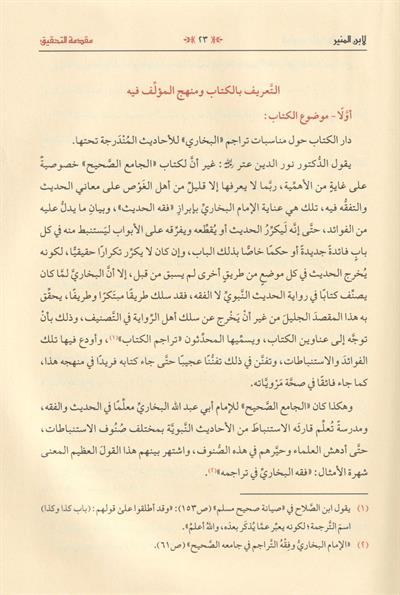 لابن المنير ٢٣ مقدمة التحقيق
التَّعريف بالكتاب ومنهج المؤلِّف فيه
أوَّلًا - موضوع الكتاب:
دار الكتاب حول مناسبات تراجم «البخاري» للأحاديث المُنْدَرجة تحتها.
يقول الدُّكتور نور الدين عتر ﵀: غير أنَّ لكتاب «الجامع الصَّحيح» خصوصيةً
على غايةٍ من الأهمِّية، ربَّما لا يعرفها إلا قليلٌ من أهل الغَوْص على معاني الحديث
والتفقُّه فيه، تلك هي عناية الإمام البخاريِّ بإبرازِ «فقه الحديث»، وبيانِ ما يدلُّ عليه
من الفوائد، حتَّى إنَّه ليكرِّرُ الحديثَ أو يُقطِّعه ويفرِّقه على الأبواب ليَستنبط منه في كل
بابٍ فائدةً جديدةً أو حكمًا خاصًّا بذلك الباب، وإن كان لا يكرِّر تكرارًا حقيقيًّا، لكونه
يُخرج الحديثَ في كل موضعٍ من طريقٍ أخرى لم يسبق من قبل، إلا أنَّ البخاريَّ لمَّا كان
يصنِّف كتابًا في رواية الحديث النَّبويِّ لا الفقه، فقد سلك طريقًا مبتكرًا وطريفًا، يحقِّق به
به هذا المقصدَ الجليلَ من غير أنْ يَخْرج عن سلك أهل الرِّواية في التَّصنيف، وذلك بأنْ
توجَّه إلى عناوين الكتاب، ويسمِّيها المحدِّثون «تراجم الكتاب»(١)، وأودع فيها تلك
الفوائدَ والاستنباطات، وتفنَّن في ذلك تفنُّنًا عجيبًا حتَّى جاء كتابه فريدًا في منهجه هذا،
كما جاء فائقًا في صحَّة مَرْوِيَّاته.
وهكذا كان «الجامع الصَّحيح» للإمام أبي عبد الله البخاريِّ معلِّمًا في الحديث والفقه،
ومدرسةً تُعلِّم قارئَه الاستنباطَ من الأحاديث النَّبويَّة بمختلف صُنُوف الاستنباطات،
حتَّى أدهش العلماءَ وحيَّرهم في هذه الصُّنوف، واشتهر بينهم هذا القولُ العظيم المعنى
شهرةَ الأمثال: «فقه البخاريِّ في تراجمه»(٢).
(١) يقول ابن الصَّلاح في «صيانة صحيح مسلم» (ص١٥٣): «وقد أطلقوا على قولهم: (باب كذا وكذا)
اسمَ التَّرجمة؛ لكونه يعبر عمَّا يُذكَر بعدَه، والله أعلمُ».
(٢) «الإمام البخاريُّ وفِقْهُ التَّراجم في جامعه الصَّحيح» (ص٦١).